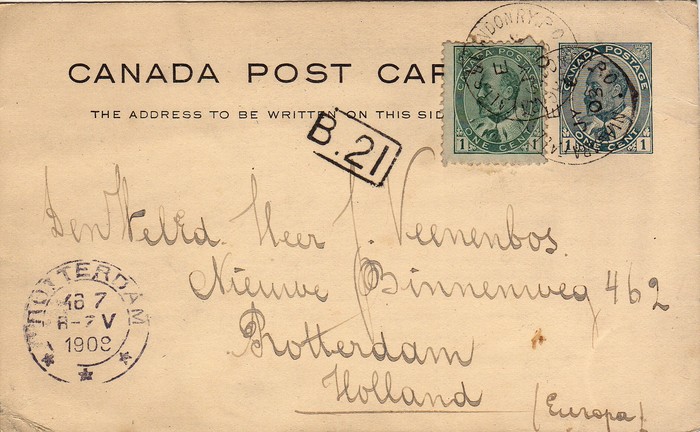 CANADA POST CAR
THE ADDRESS TO BE WRITTEN ON THIS SID
CANADA POSTAGE
1 1
ONE CENT
CANADA POSTAGE
1 1
ONE CENT
B.21
Den WelEd. Heer J. Veenenbos.
Nieuwe Binnenweg 462
Rotterdam
Holland
(Europa)
ROTTERDAM
7
6-7 V
1908